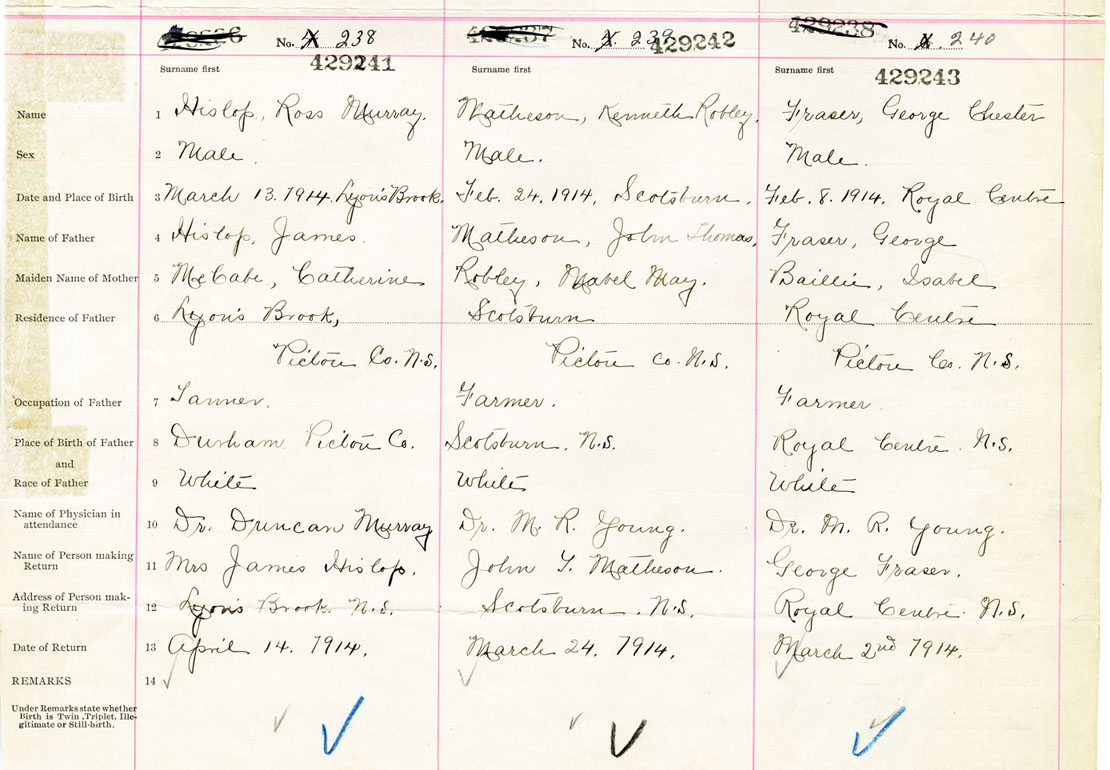 No. 238 No. 239 429242 No. 240
429241 429243
Surname first Surname first Surname first
Name 1 Hislop, Ross Murray. Matheson, Kenneth Robley. Fraser, George Chester
Sex 2 Male. Male. Male.
Date and Place of Birth 3 March 13. 1914. Lyon's Brook. Feb. 24. 1914, Scotsburn. Feb. 8. 1914. Royal Centre
Name of Father 4 Hislop, James. Matheson, John Thomas. Fraser, George
Maiden Name of Mother 5 McCabe, Catherine Robley, Mabel May. Baillie, Isabel
Residence of Father 6 Lyon's Brook, Scotsburn Royal Centre
Pictou Co. N.S. Pictou Co. N.S. Pictou Co. N.S.
Occupation of Father 7 Tanner. Farmer. Farmer
Place of Birth of Father 8 Durham Pictou Co. Scotsburn. N.S. Royal Centre. N.S.
and
Race of Father 9 White White White
Name of Physician in
attendance 10 Dr. Duncan Murray Dr. M. R. Young. Dr. M. R. Young.
Name of Person making
Return 11 Mrs James Hislop. John T. Matheson. George Fraser.
Address of Person mak-
ing Return 12 Lyon's Brook. N.S. Scotsburn. N.S. Royal Centre. N.S.
Date of Return 13 April 14. 1914. March 24. 1914. March 2nd 1914.
REMARKS 14
Under Remarks state whether
Birth is Twin, Triplet, Ille-
gitimate or Still-birth.